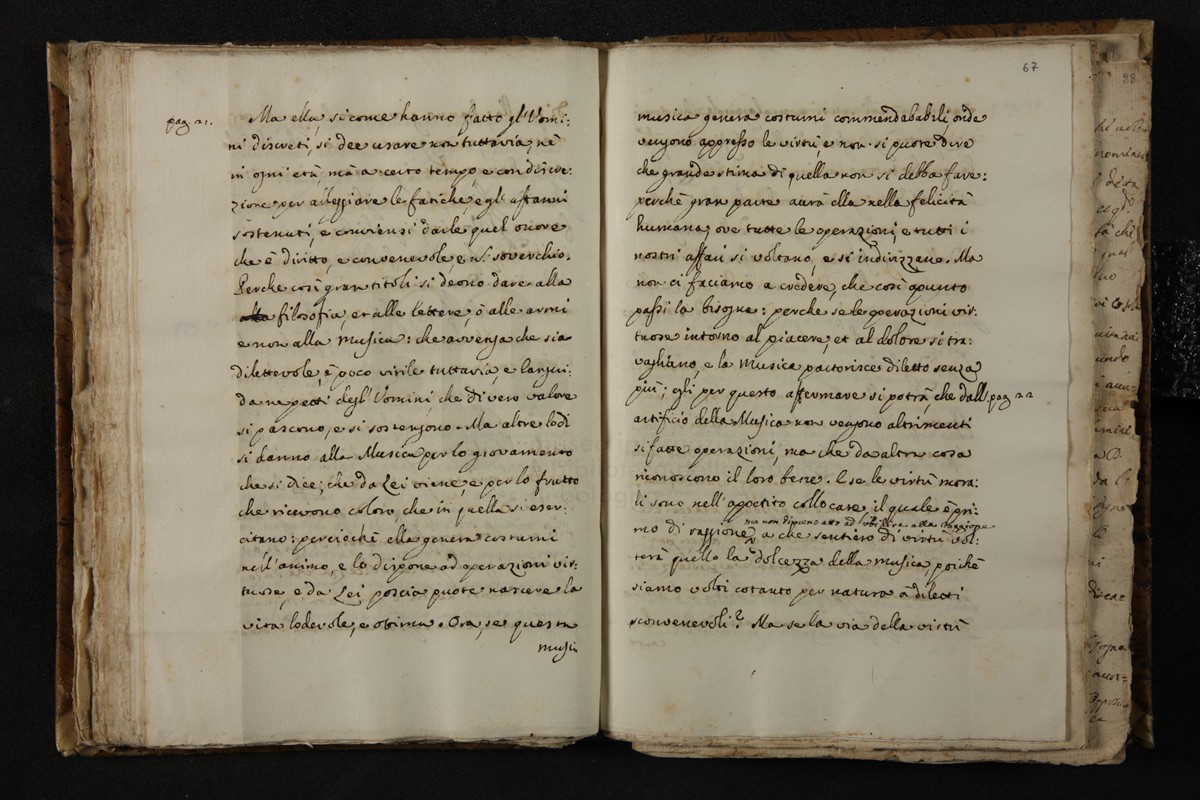 pag. 21.
Ma ella, si come hanno fatto gl'Uomi:
ni discreti, si dee usare non tuttavia, nè
in ogni età, mà a certo tempo, e con discre:
zione per alleggiare le fatiche, e gl'affanni
sostenuti, e conviensi darle quel onore
che è diritto, e convenevole, e nõ soverchio.
Perche così gran titoli si deono dare alla
filosofia, et alle lettere, ò alle armi
e non alla Musica: che avvenga che sia
dilettevole, è poco virile tuttavia, e langui:
da ne petti degl'Uomini, che di vero valore
si pascono, e si sostengono. Ma altre lodi
si danno alla Musica per lo giovamento
che si dice; che da Lei viene, e per lo frutto
che ricevono coloro, che in quella si eser:
citano: perciochè ella genera costumi
nell'animo, e lo dispone ad operazioni vir:
tuose, e da Lei poscia puote nascere la
vita lodevole, e ottima. Ora, se questa
musi:
67
musica genera costumi commendababili, onde
vengono appresso le virtù, e non si puote dire
che grande stima di quella non si debba fare:
perchè gran parte aurà ella nella felicità
humana, ove tutte le operazioni, e tutti i
nostri affari si voltano, e si indirizzano. Ma
non ci faciamo a credere, che così apunto
passi la bisogna: perche se le operazioni vir:
tuose intorno al piacere, et al dolore si tra:
vagliano, e la Musica partorisce diletto senza
più; egli per questo affermare si potrà, che dall'
pag 22
artificio della Musica non vengono altrimenti
si fatte operazioni, ma che da altra cosa
riconoscono il loro bene. E se le virtù mora:
li sono nell'appetito collocate, il quale è pri:
ma non dipreno atto ad ubidire alla raggione
mo di raggione, a che sentiero di virtù vol:
terà quello la dolcezza della musica, poichè
siamo volti cotanto per natura à diletti
sconvenevoli? Ma se la via della virtù
88